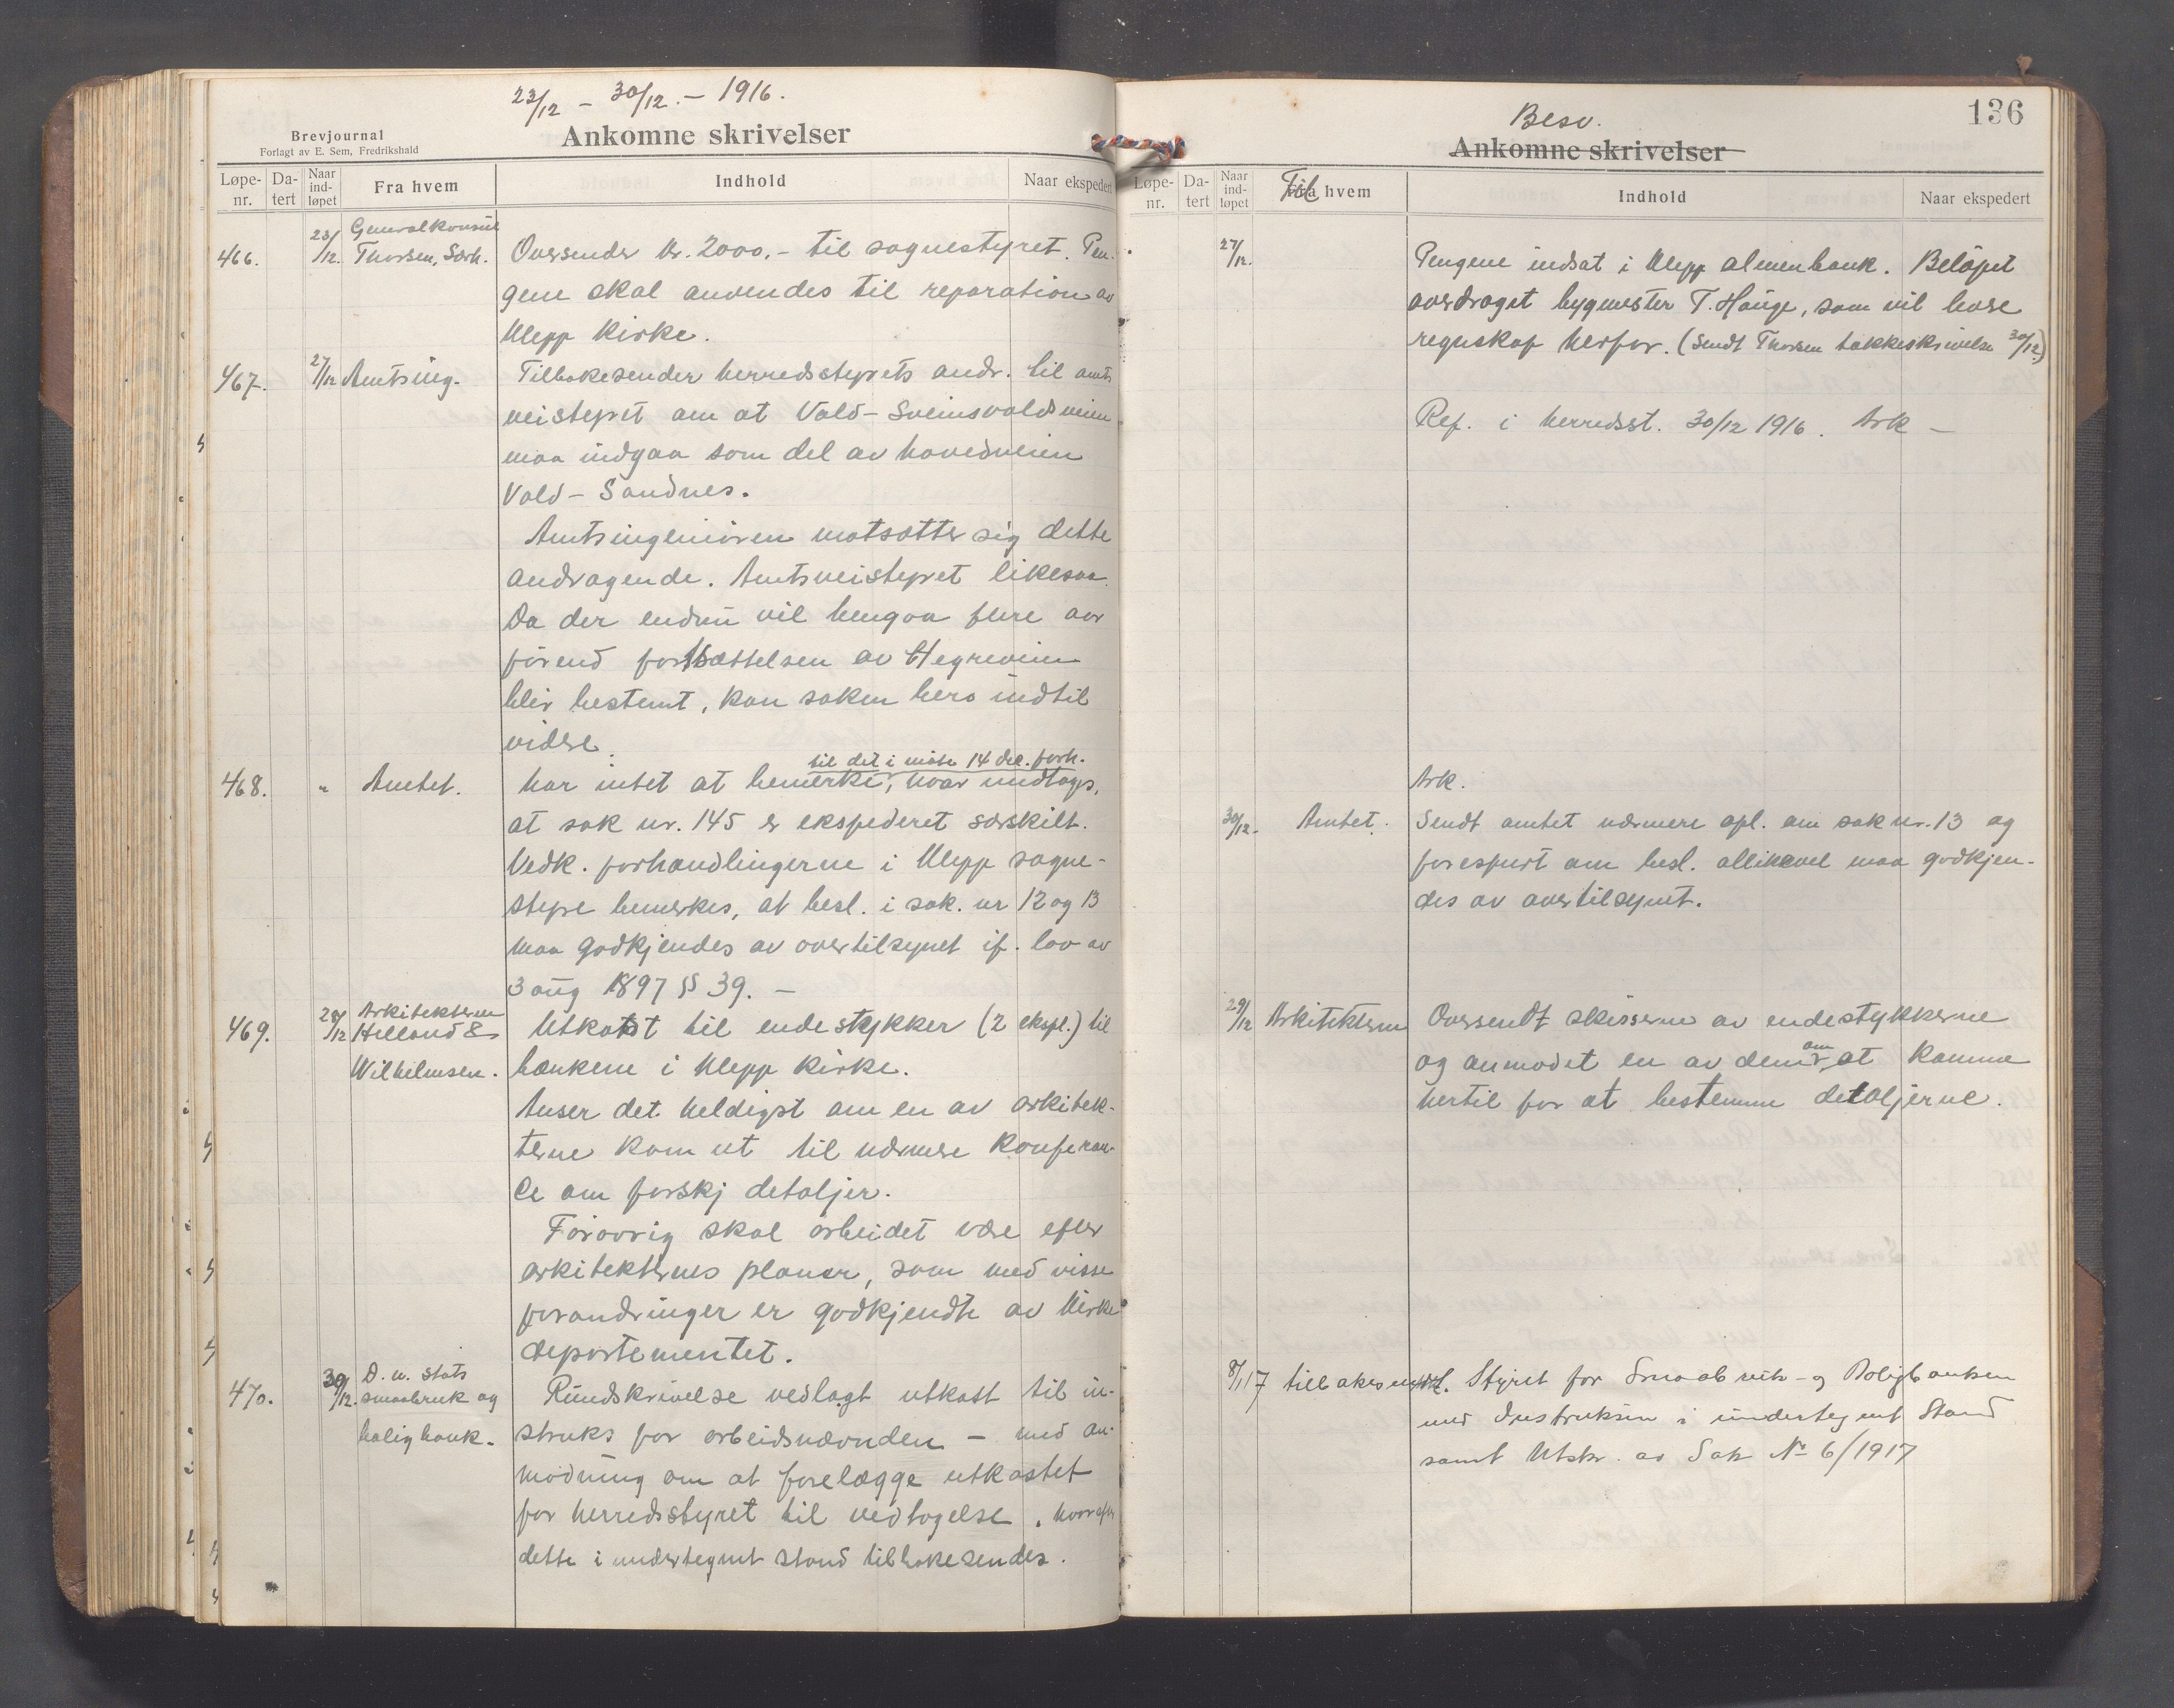 23/12 – 30/12. – 1916.
Brevjournal
Forlagt av E. Sem, Fredrikshald
Ankomne skrivelser
Løpe-nr. Da-tert Naar ind-løpet Fra hvem Indhold Naar ekspedert
466. 23/12. Generalkonsul Thorsen, Sørh. Oversender kr. 2000.- til sognestyret. Pen-
gene skal anvendes til reparation av
Klepp kirke.
467. 27/12 Amtsing. Tilbakesender herredsstyrets andr. til amts
veistyret om at Vold – Sveinsvoldsveien
maa indgaa som del av hovedveien
Vold – Sandnes.
Amtsingeniøren motsætter sig dette
andragende. Amtsveistyret likesaa.
Da der endnu vil hengaa flere aar
førend fortsættelsen av Hegreveien
blir bestemt, kan saken bero indtil
videre.
til det i møte 14 des. forh.
468. " Amtet. har intet at bemerke, hvor undtages,
at sak nr. 145 er ekspederet særskilt.
Vedk. forhandlingerne i Klepp sogne-
styre bemerkes, at besl. i sak. nr 12 og 13
maa godkjendes av overtilsynet if. lov av
3 aug 1897 § 39. –
469. 28/12 Arkitekterne Helland & Wilhelmsen. Utkast til endestykker (2 ekspl.) til
bænkene i Klepp kirke.
Anser det heldigst om en av arkitek-
terne kom ut til nærmere konferan-
ce om forskj detaljer.
Forøvrig skal arbeidet være efter
arkitekternes planer, som med visse
forandringer er godkjendt av Kirke
departementet.
470. 30/12. D. n. stats smaabruk og bolig bank. Rundskrivelse vedlagt utkast til in-
struks for arbeidsnævnden – med an-
modning om at forelægge utkastet
for herredsstyret til vedtagelse, hvorefter
dette i undertegnet stand tilbakesendes.
136
Besv.
Ankomne skrivelser
Løpe-nr. Da-tert Naar ind-løpet Til hvem Indhold Naar ekspedert
27/12. Pengene indsat i Klepp almenbank. Beløpet
overdraget bygmester T. Hauge, som vil levere
regnskap herfor. (Sendt Thorsen takkeskrivelse 30/12.)
Ref. i herredsst. 30/12 1916. Ark –
Ark.
30/12. Amtet. Sendt amtet nærmere opl. om sak nr. 13 og
forespurt om besl. allikevel maa godkjen-
des av overtilsynet.
29/12 Arkitekterne Oversendt skisserne av endestykkerne
og anmodet en av dem om at komme
hertil for at bestemme detaljerne.
8/1 17 tilbakesendt. Styret for Smaabruk- og Boligbanken
med Instruksen i undertegnet Stand
samt Utskr. av Sak No 6/1917